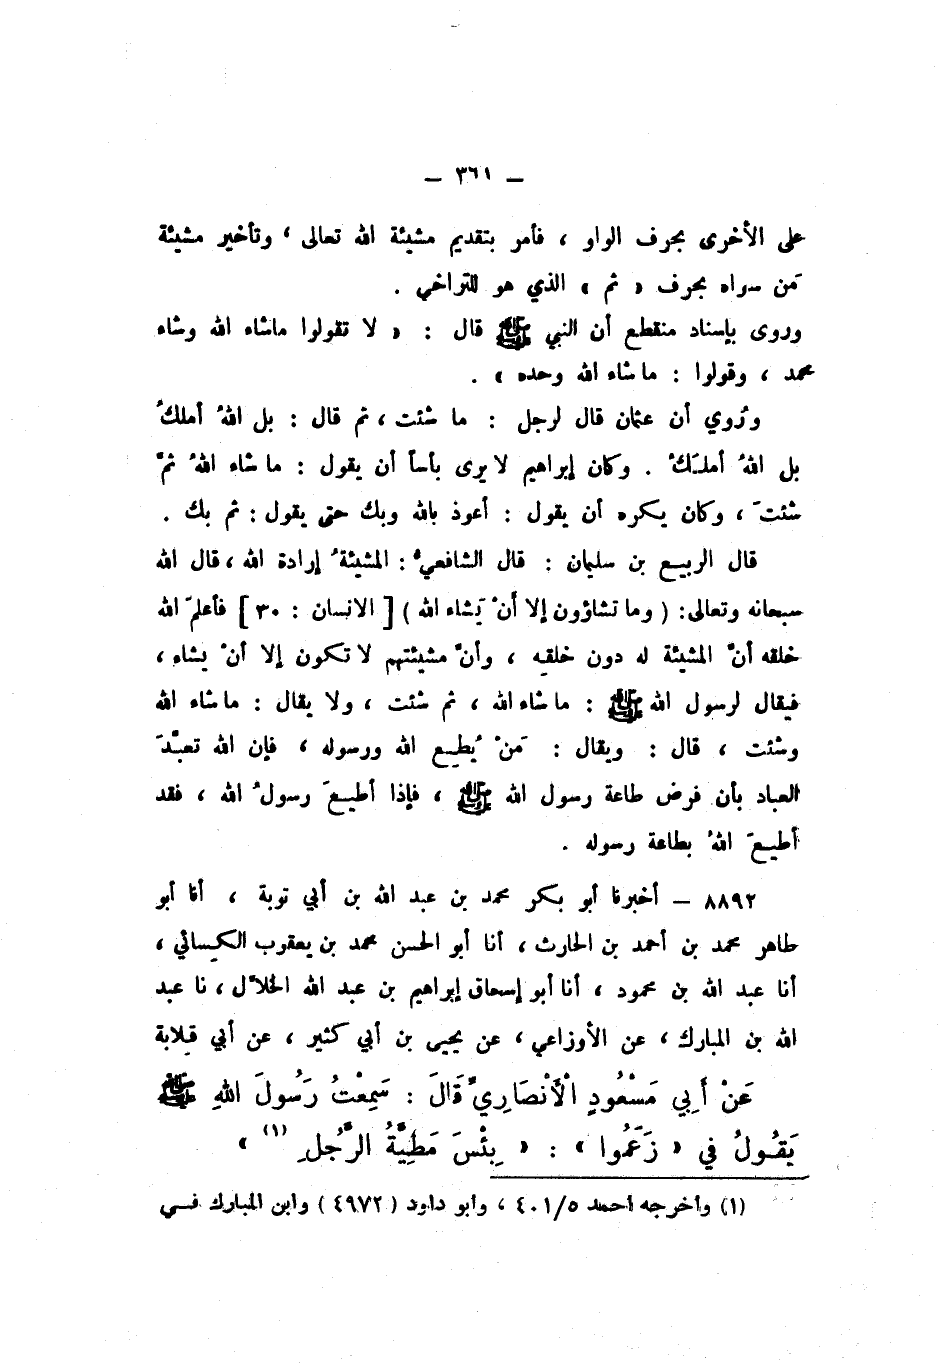 — ٣٦١ —
على الأخرى بحرف الواو ، فأمر بتقديم مشيئة الله تعالى ، وتأخير مشيئة
مَن سواه بحرف « ثم » الذي هو للتراخي .
وروى بإسناد منقطع أن النبي ﷺ قال : « لا تقولوا ماشاء الله وشاء
محمد ، وقولوا : ما شاء الله وحده » .
ورُوي أن عثمان قال لرجل : ما شئت ، ثم قال : بل اللهُ أملكُ
بل اللهُ أملَكُ . وكان إبراهيم لا يرى بأساً أن يقول : ما شاء اللهُ ثمَّ
شئتَ ، وكان يكره أن يقول : أعوذ بالله وبك حتى يقول : ثم بك .
قال الربيع بن سليمان : قال الشافعيُّ : المشيئةُ إرادة الله ، قال الله
سبحانه وتعالى : ( وما تشاؤون إلا أنْ يَشاء الله ) [ الانسان : ٣٠ ] فأعلمَ الله
خلقه أنَّ المشيئة له دون خلقِه ، وأنَّ مشيئتهم لا تكون إلا أنْ يشاء ،
فيقال لرسول الله ﷺ : ما شاء الله ، ثم شئت ، ولا يقال : ما شاء الله
وشئت ، قال : ويقال : مَنْ يُطِع الله ورسوله ، فإن الله تعبَّدَ
العباد بأن فرض طاعة رسول الله ﷺ ، فإذا أطيعَ رسولُ الله ، فقد
أطيعَ اللهُ بطاعة رسوله .
٨٨٩٢ — أخبرنا أبو بكر محمد بن عبد الله بن أبي توبة ، أنا أبو
طاهر محمد بن أحمد بن الحارث ، أنا أبو الحسن محمد بن يعقوب الكِسائي ،
أنا عبد الله بن محمود ، أنا أبو إسحاق إبراهيم بن عبد الله الخلاَّل ، نا عبد
الله بن المبارك ، عن الأوزاعي ، عن يحيى بن أبي كثير ، عن أبي قِلابة
عَنْ أَبِي مَسْعُودٍ الْأَنْصَارِيِّ قَالَ : سَمِعْتُ رَسُولَ اللهِ ﷺ
يَقُولُ في « زَعَمُوا » : « بِئْسَ مَطِيَّةُ الرَّجُلِ (١) »
(١) وأخرجه أحمد ٤٠١/٥ ، وأبو داود ( ٤٩٧٢ ) وابن المبارك فـي